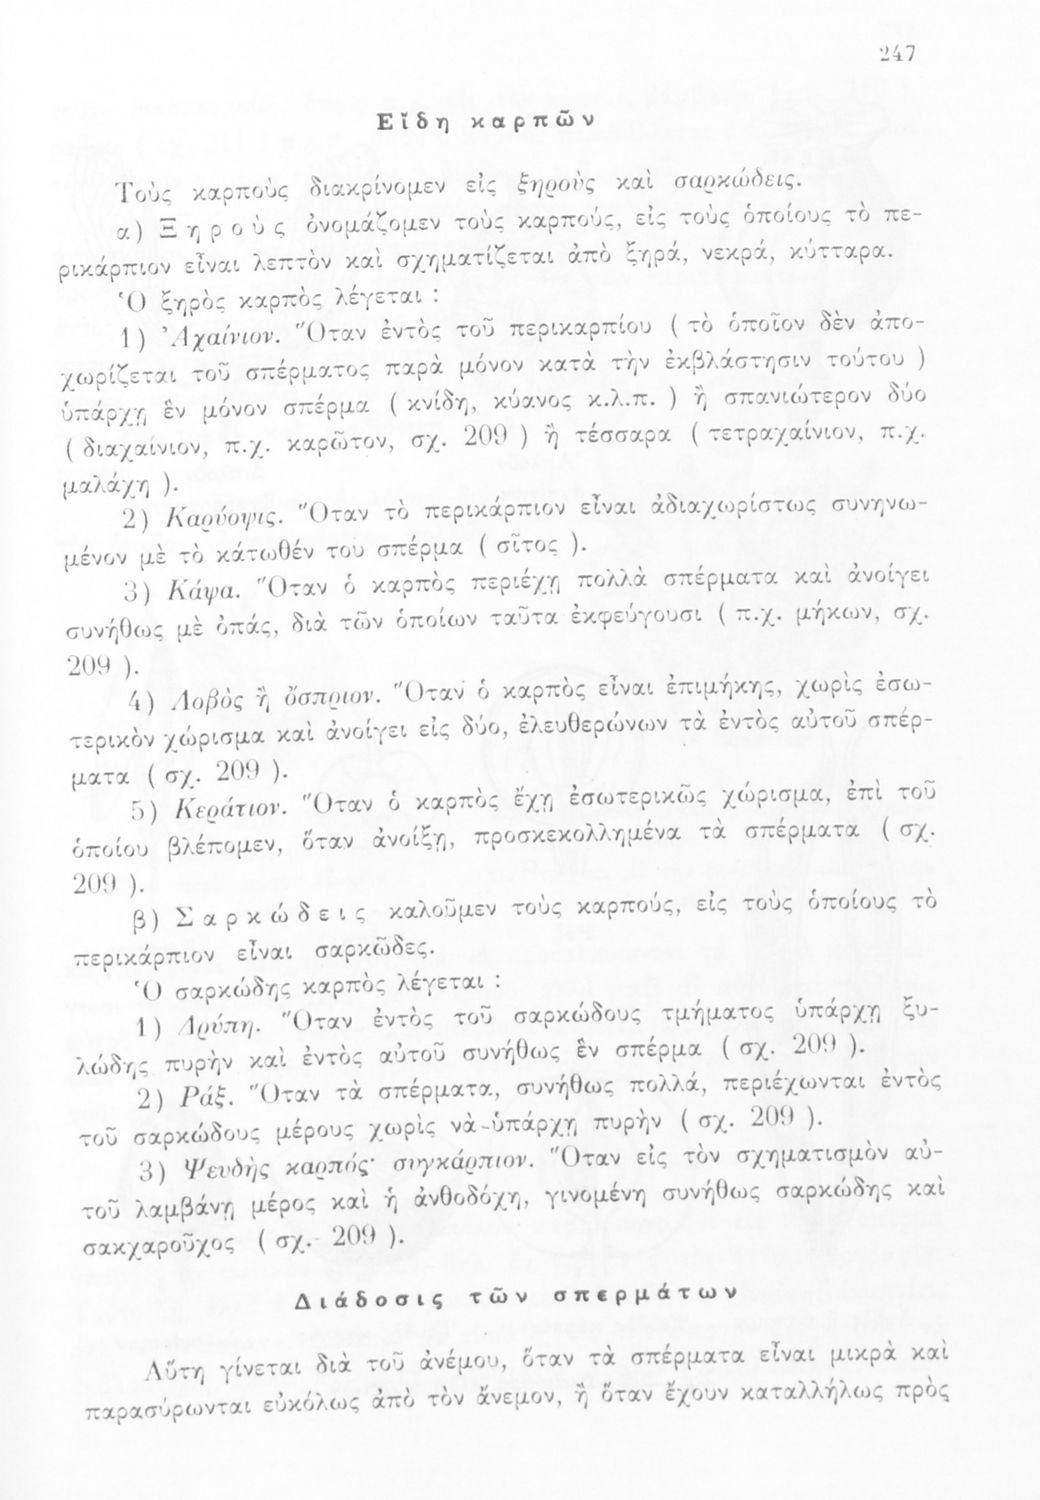 247
Εἴδη καρπῶν
Τοὺς καρποὺς διακρίνομεν εἰς ξηροὺς καὶ σαρκώδεις.
α) Ξηροὺς ὀνομάζομεν τοὺς καρπούς, εἰς τοὺς ὁποίους τὸ πε-
ρικάρπιον εἶναι λεπτὸν καὶ σχηματίζεται ἀπὸ ξηρά, νεκρά, κύτταρα.
Ὁ ξηρὸς καρπὸς λέγεται :
1) Ἀχαίνιον. Ὅταν ἐντὸς τοῦ περικαρπίου ( τὸ ὁποῖον δὲν ἀπο-
χωρίζεται τοῦ σπέρματος παρὰ μόνον κατὰ τὴν ἐκβλάστησιν τούτου )
ὑπάρχῃ ἓν μόνον σπέρμα ( κνίδη, κύανος κ.λ.π. ) ἢ σπανιώτερον δύο
( διαχαίνιον, π.χ. καρῶτον, σχ. 209 ) ἢ τέσσαρα ( τετραχαίνιον, π.χ.
μαλάχη ).
2) Καρύοψις. Ὅταν τὸ περικάρπιον εἶναι ἀδιαχωρίστως συνηνω-
μένον μὲ τὸ κάτωθέν του σπέρμα ( σῖτος ).
3) Κάψα. Ὅταν ὁ καρπὸς περιέχῃ πολλὰ σπέρματα καὶ ἀνοίγει
συνήθως μὲ ὀπάς, διὰ τῶν ὁποίων ταῦτα ἐκφεύγουσι ( π.χ. μήκων, σχ.
209 ).
4) Λοβὸς ἢ ὄσπριον. Ὅταν ὁ καρπὸς εἶναι ἐπιμήκης, χωρὶς ἐσω-
τερικὸν χώρισμα καὶ ἀνοίγει εἰς δύο, ἐλευθερώνων τὰ ἐντὸς αὐτοῦ σπέρ-
ματα ( σχ. 209 ).
5) Κεράτιον. Ὅταν ὁ καρπὸς ἔχῃ ἐσωτερικῶς χώρισμα, ἐπὶ τοῦ
ὁποίου βλέπομεν, ὅταν ἀνοίξῃ, προσκεκολλημένα τὰ σπέρματα ( σχ.
209 ).
β) Σαρκώδεις καλοῦμεν τοὺς καρπούς, εἰς τοὺς ὁποίους τὸ
περικάρπιον εἶναι σαρκῶδες.
Ὁ σαρκώδης καρπὸς λέγεται :
1) Δρύπη. Ὅταν ἐντὸς τοῦ σαρκώδους τμήματος ὑπάρχῃ ξυ-
λώδης πυρὴν καὶ ἐντὸς αὐτοῦ συνήθως ἓν σπέρμα ( σχ. 209 ).
2) Ράξ. Ὅταν τὰ σπέρματα, συνήθως πολλά, περιέχωνται ἐντὸς
τοῦ σαρκώδους μέρους χωρὶς νὰ ὑπάρχῃ πυρὴν ( σχ. 209 ).
3) Ψευδὴς καρπός· συγκάρπιον. Ὅταν εἰς τὸν σχηματισμὸν αὐ-
τοῦ λαμβάνῃ μέρος καὶ ἡ ἀνθοδόχη, γινομένη συνήθως σαρκώδης καὶ
σακχαροῦχος ( σχ. 209 ).
Διάδοσις τῶν σπερμάτων
Αὕτη γίνεται διὰ τοῦ ἀνέμου, ὅταν τὰ σπέρματα εἶναι μικρὰ καὶ
παρασύρωνται εὐκόλως ἀπὸ τὸν ἄνεμον, ἢ ὅταν ἔχουν καταλλήλως πρὸς